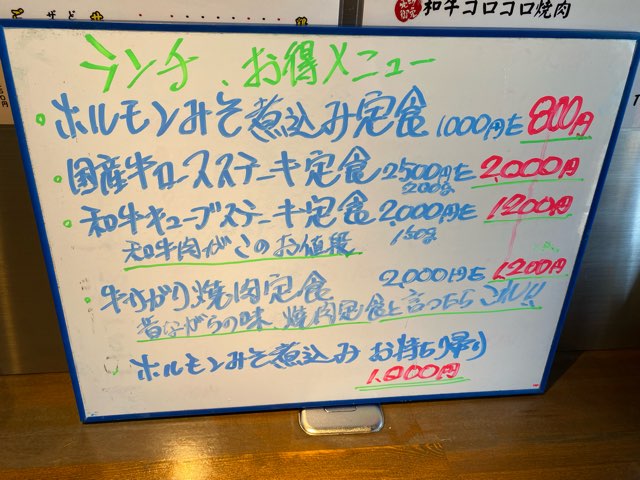 和牛コロコロ焼肉
ランチ、お得メニュー
ホルモンみそ煮込み定食 1000円を 800円
国産牛ロースステーキ定食 2500円を 2,000円
200g
和牛キューブステーキ定食 2,000円を 1200円
150g
和牛肉がこのお値段
牛りがり焼肉定食 2,000円を 1,200円
昔ながらの味 焼肉定食と言ったらこれ!!
ホルモンみそ煮込み お持ち帰り
1,000円